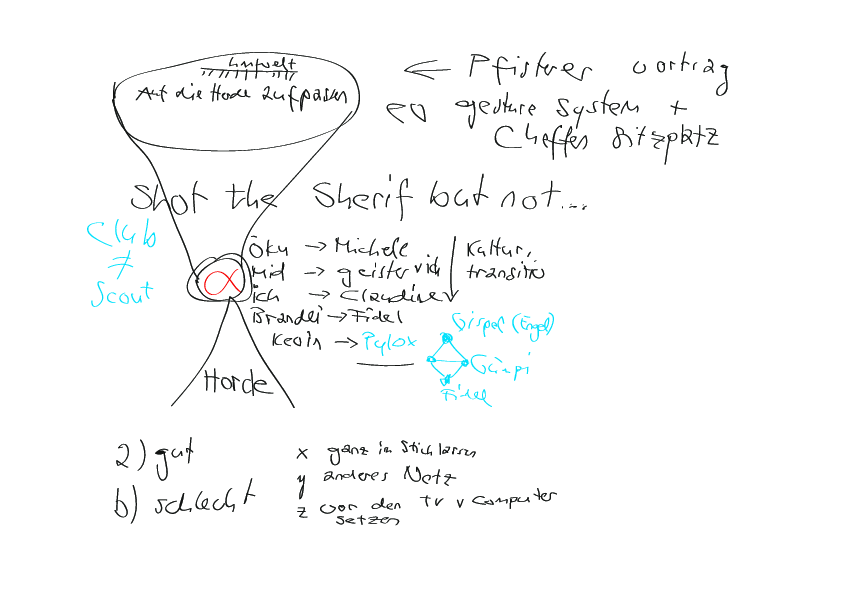 Umwelt
Auf die Horde aufpassen
← Pfisterer vortrag
gesture system +
Cheffen Sitzplatz
Shot the Sherif but not...
Club
≠
Scout
α
Öku → Michele
Mid → geistervich
ich → Claudine
Brandei → Fidel
Kevin → Pylox
Kultur,
transitiv
Gispel (Engel)
Günpi
Fidel
Horde
2) gut
b) schlecht
x ganz im Stich lassen
y anderes Netz
z vor den TV v Computer
setzen